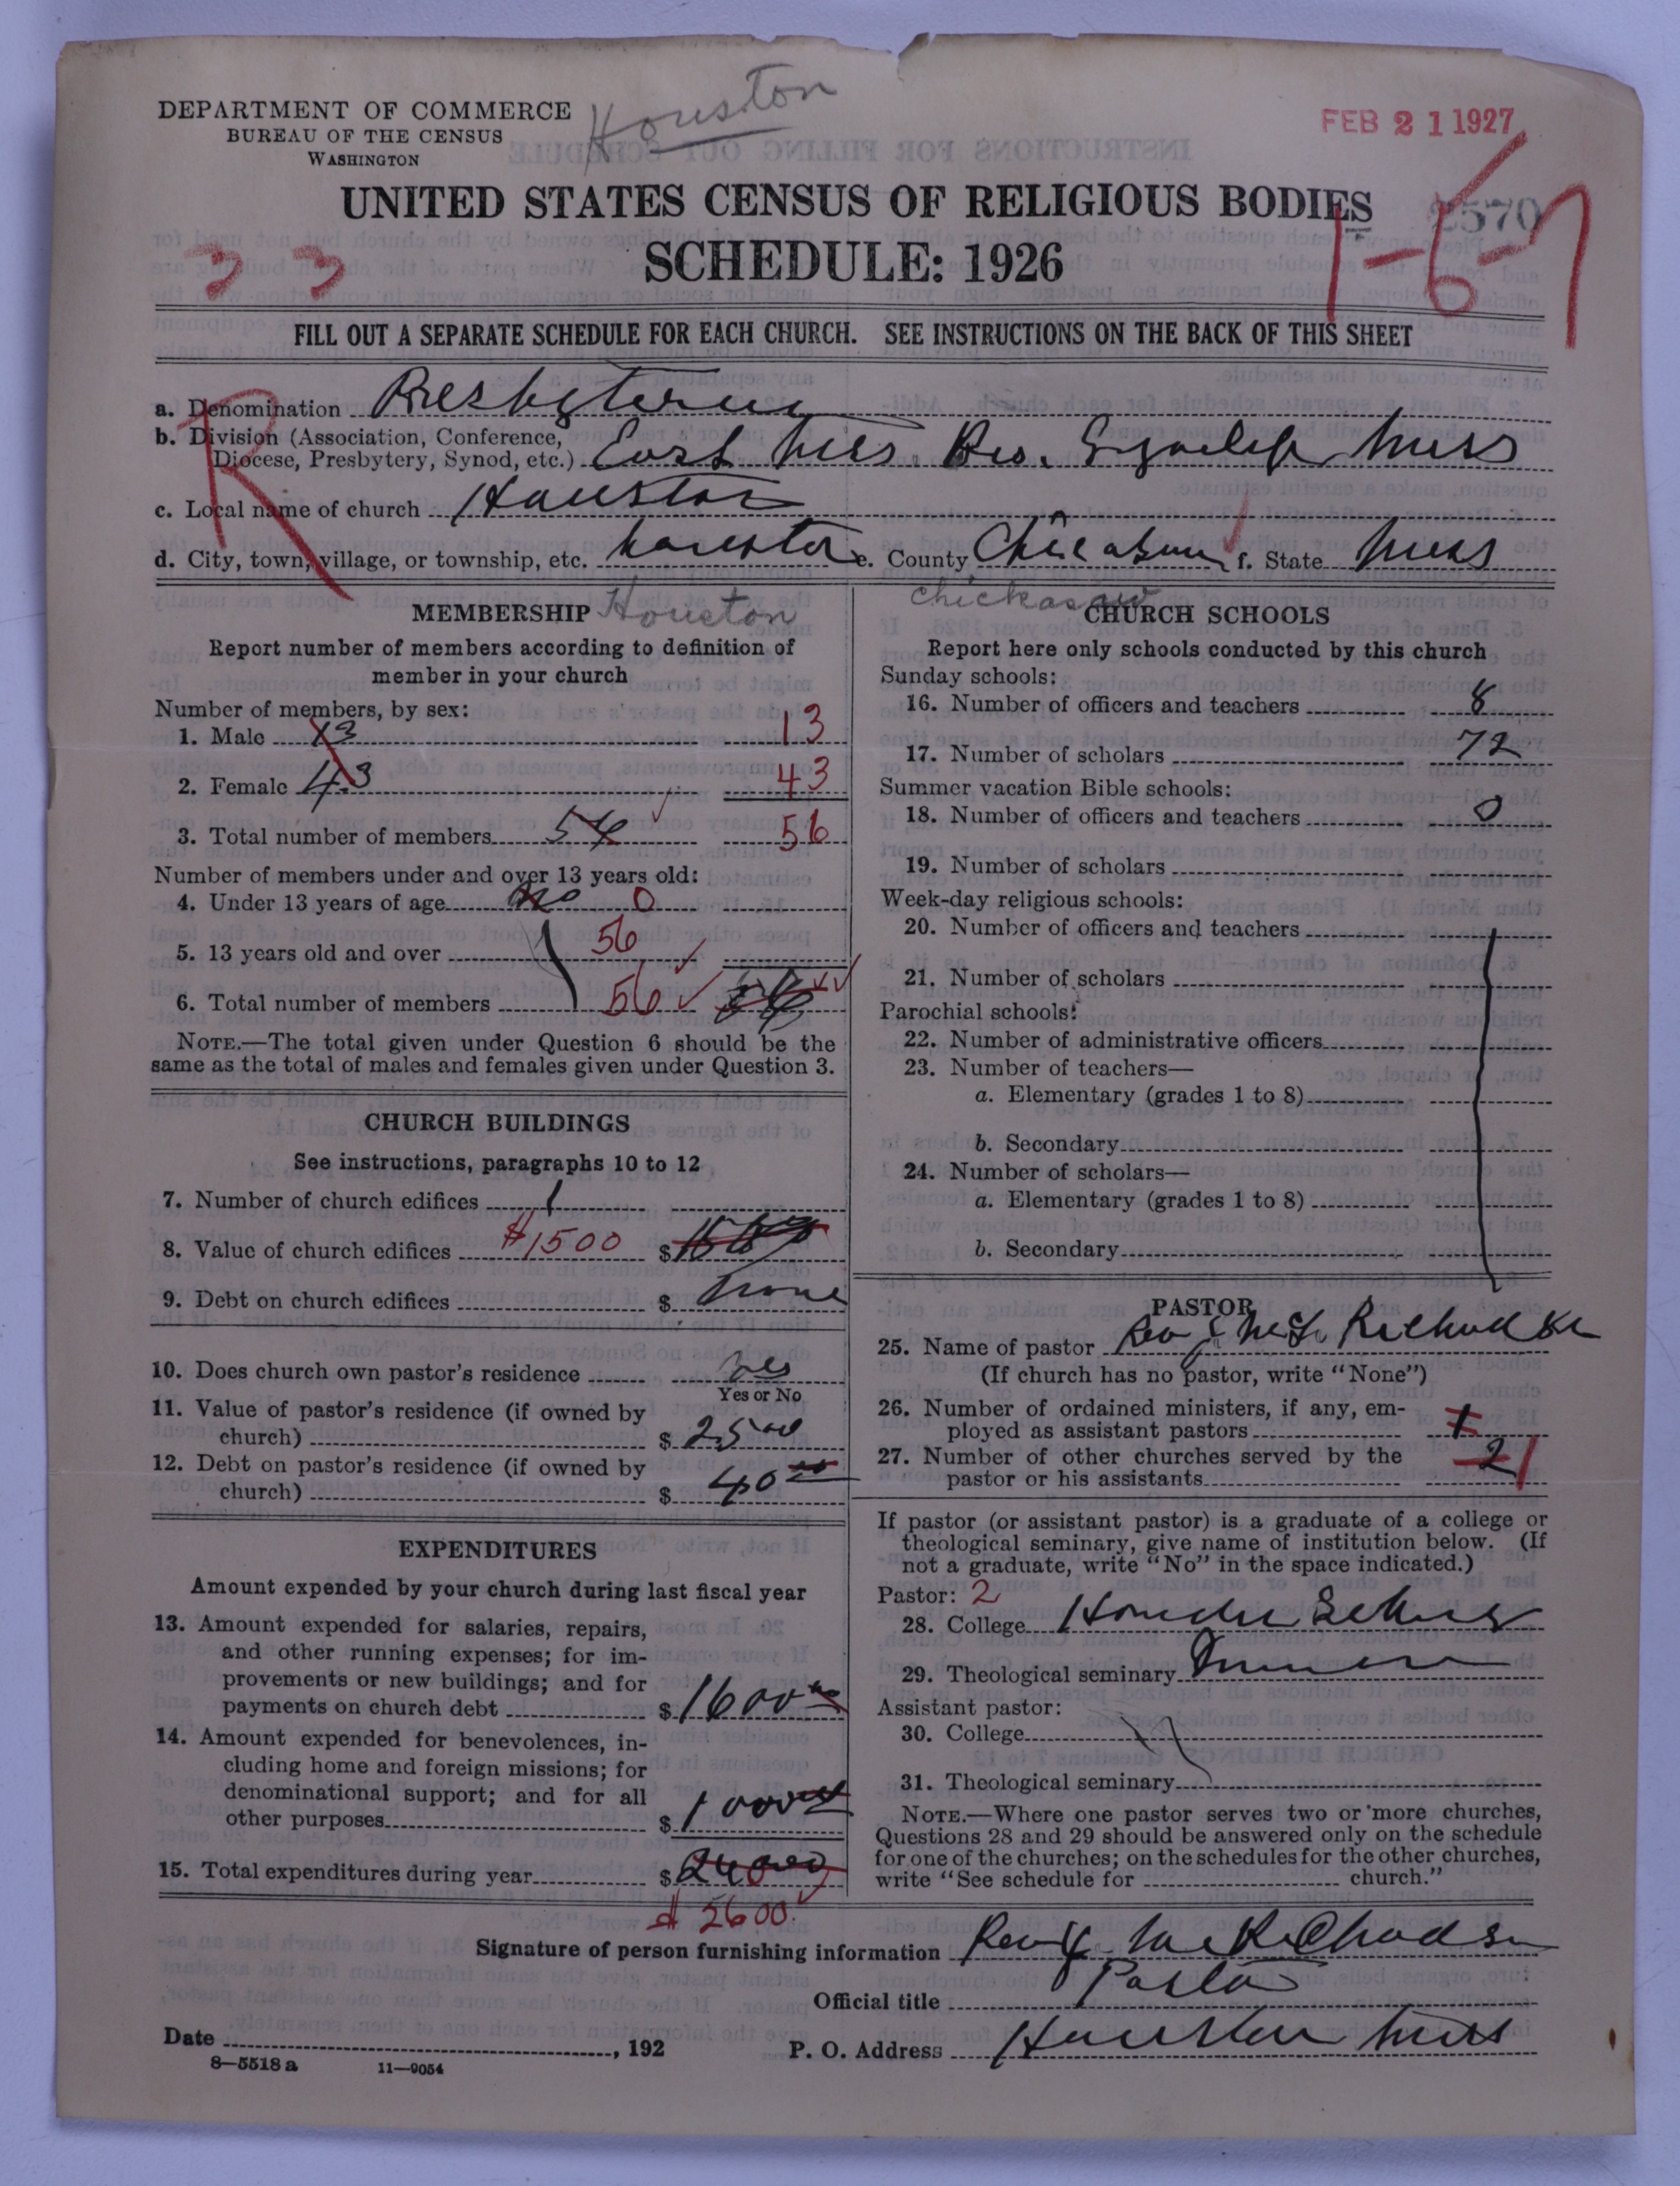 DEPARTMENT OF COMMERCE
BUREAU OF THE CENSUS
WASHINGTON
Houston
FEB 21 1927
UNITED STATES CENSUS OF RELIGIOUS BODIES
2570
SCHEDULE: 1926
33
1-6-7
FILL OUT A SEPARATE SCHEDULE FOR EACH CHURCH. SEE INSTRUCTIONS ON THE BACK OF THIS SHEET
R
a. Denomination Presbyterian
b. Division (Association, Conference,
Diocese, Presbytery, Synod, etc.) East Miss. Miss
c. Local name of church Houston
d. City, town, village, or township, etc. Houston e. County Chickasaw f. State Miss
MEMBERSHIP Houston
Report number of members according to definition of
member in your church
Number of members, by sex:
1. Male 13 13
2. Female 43 43
3. Total number of members 56 56
Number of members under and over 13 years old:
4. Under 13 years of age no 0
5. 13 years old and over 56
6. Total number of members 56 56
NOTE.—The total given under Question 6 should be the
same as the total of males and females given under Question 3.
CHURCH BUILDINGS
See instructions, paragraphs 10 to 12
7. Number of church edifices 1
8. Value of church edifices $1500 $
9. Debt on church edifices $ none
10. Does church own pastor's residence yes
Yes or No
11. Value of pastor's residence (if owned by
church) $ 2500
12. Debt on pastor's residence (if owned by
church) $ 40 00
EXPENDITURES
Amount expended by your church during last fiscal year
13. Amount expended for salaries, repairs,
and other running expenses; for im-
provements or new buildings; and for
payments on church debt $ 1600 00
14. Amount expended for benevolences, in-
cluding home and foreign missions; for
denominational support; and for all
other purposes $ 1000
15. Total expenditures during year $
$ 2600
chickasaw
CHURCH SCHOOLS
Report here only schools conducted by this church
Sunday schools:
16. Number of officers and teachers 8
17. Number of scholars 72
Summer vacation Bible schools:
18. Number of officers and teachers 0
19. Number of scholars
Week-day religious schools:
20. Number of officers and teachers
21. Number of scholars
Parochial schools:
22. Number of administrative officers
23. Number of teachers—
a. Elementary (grades 1 to 8)
b. Secondary
24. Number of scholars—
a. Elementary (grades 1 to 8)
b. Secondary
PASTOR
25. Name of pastor Rev J
(If church has no pastor, write "None")
26. Number of ordained ministers, if any, em-
ployed as assistant pastors 1
27. Number of other churches served by the
pastor or his assistants 2 1
If pastor (or assistant pastor) is a graduate of a college or
theological seminary, give name of institution below. (If
not a graduate, write "No" in the space indicated.)
Pastor: 2
28. College
29. Theological seminary
Assistant pastor:
30. College
31. Theological seminary
NOTE.—Where one pastor serves two or more churches,
Questions 28 and 29 should be answered only on the schedule
for one of the churches; on the schedules for the other churches,
write "See schedule for church."
Signature of person furnishing information Rev J
Official title Pastor
Date , 192
P. O. Address Houston Miss
8—5518 a 11—9054